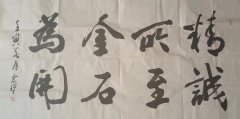 精誠
所至
金石
為開